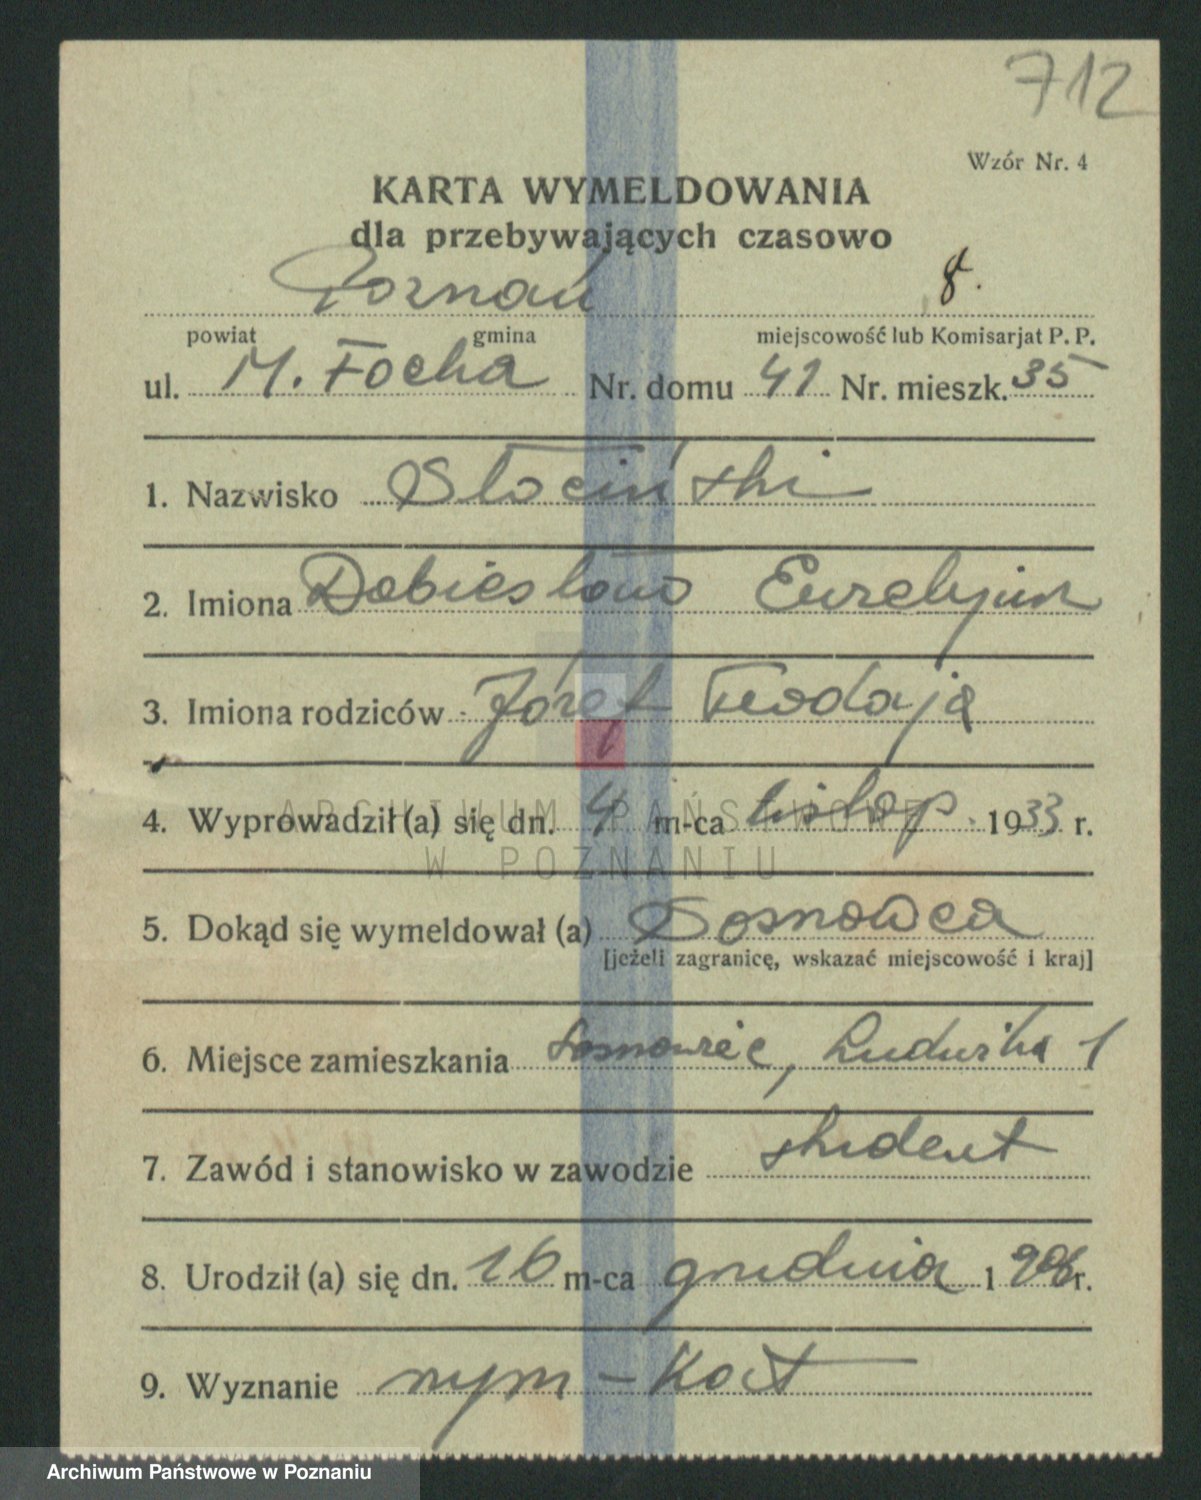 712
Wzór Nr. 4
KARTA WYMELDOWANIA
dla przebywających czasowo
Poznań 8.
powiat gmina miejscowość lub Komisarjat P. P.
ul. M. Focha Nr. domu 41 Nr. mieszk. 35
1. Nazwisko Słociński
2. Imiona Dobiesław
3. Imiona rodziców Józef
4. Wyprowadził (a) się dn. 4 m-ca listop. 1933 r.
ARCHIWUM PAŃSTWOWE
W POZNANIU
5. Dokąd się wymeldował (a) Sosnowca
[jeżeli zagranicę, wskazać miejscowość i kraj]
6. Miejsce zamieszkania Sosnowiec, 1
7. Zawód i stanowisko w zawodzie student
8. Urodził (a) się dn. 16 m-ca grudnia 1908 r.
9. Wyznanie rzym-Kat
Archiwum Państwowe w Poznaniu